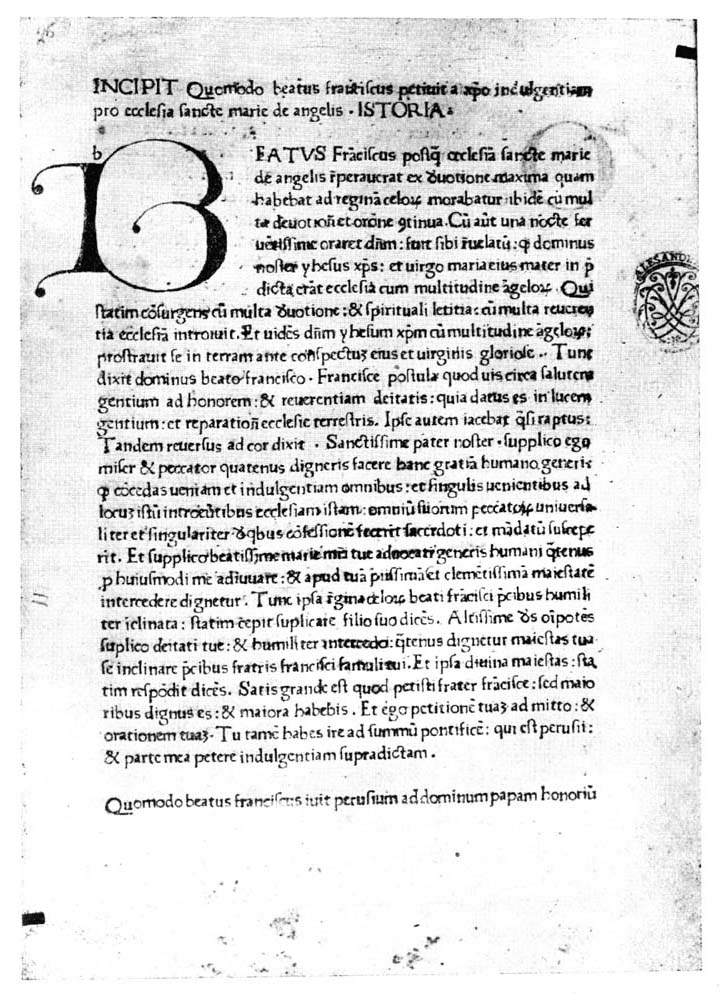 26
INCIPIT Quomodo beatus franciscus petiuit a xp̄o indulgentiam
pro ecclesia sancte marie de angelis . ISTORIA :
b
BEATVS Frāciscus postq̄ ecclesiā sancte marie
de angelis r̄peraucrat ex deuotione maxima quam
habebat ad reginā celoꝝ morabatur ibidē cū mul
ta deuotioñ et orōne ꝯtinua. Cū aūt una nocte fer
uētissime oraret dn̄m : fuit sibi r̄uelatū : ꝙ dominus
noster yhesus xp̄s : et uirgo maria eius mater in p̄
dicta erat ecclesia cum multitudine āgeloꝝ . Qui
statim cōsurgens cū multa deuotione : & spirituali letitia : cū multa reueren
tia ecclesiā introiuit. Et uidēs dn̄m yhesum xp̄m cū multitudine āgeloꝝ :
prostrauit se in terram ante conspectus eius et uirginis gloriose .. Tunc
dixit dominus beato francisco . Francisce postula quod uis circa salutem
gentium ad honorem : & reuerentiam deitatis : quia datus es in lucem
gentium : et reparationē ecclesie terrestris. Ipse autem iacebat q̄si raptus :
Tandem reuersus ad cor dixit . Sanctissime pater noster . supplico ego
miser & peccator quatenus digneris facere hanc gratiā humano generi
ꝙ cōcedas ueniam et indulgentiam omnibus : et singulis uenientibus ad
locuꝫ istū introeūtibus ecclesiam istam : omniū suorum peccatoꝝ uniuersa
liter et singulariter de qbus cōfessionē fecerit sacerdoti : et mādatū suscepe
rit. Et supplico beatissime marie mr̄i tue aduocati generis humani q̄tenus
ꝓ huiusmodi me adiuuare : & apud tuā piissimā et clemētissimā maiestatē
intercedere dignetur . Tunc ipsa r̄gina celoꝝ beati frācisci p̄cibus humili
ter īclinata : statim cepit suplicare filio suo dicēs. Altissime ds oīpotēs
suplico deitati tue : & humiliter intercedo : q̄tenus dignetur maiestas tua
se inclinare p̄cibus fratris francisci famuli tui. Et ipsa diuina maiestas : sta
tim respōdit dicēs. Satis grande est quod petisti frater frācisce : sed maio
ribus dignus es : & maiora habebis . Et ego petitionē tuaꝫ ad mitto : &
orationem tuaꝫ . Tu tamē habes ire ad summū pontificē : qui est perusii :
& parte mea petere indulgentiam supradictam .
Quomodo beatus franciscus iuit perusium ad dominum papam honoriū